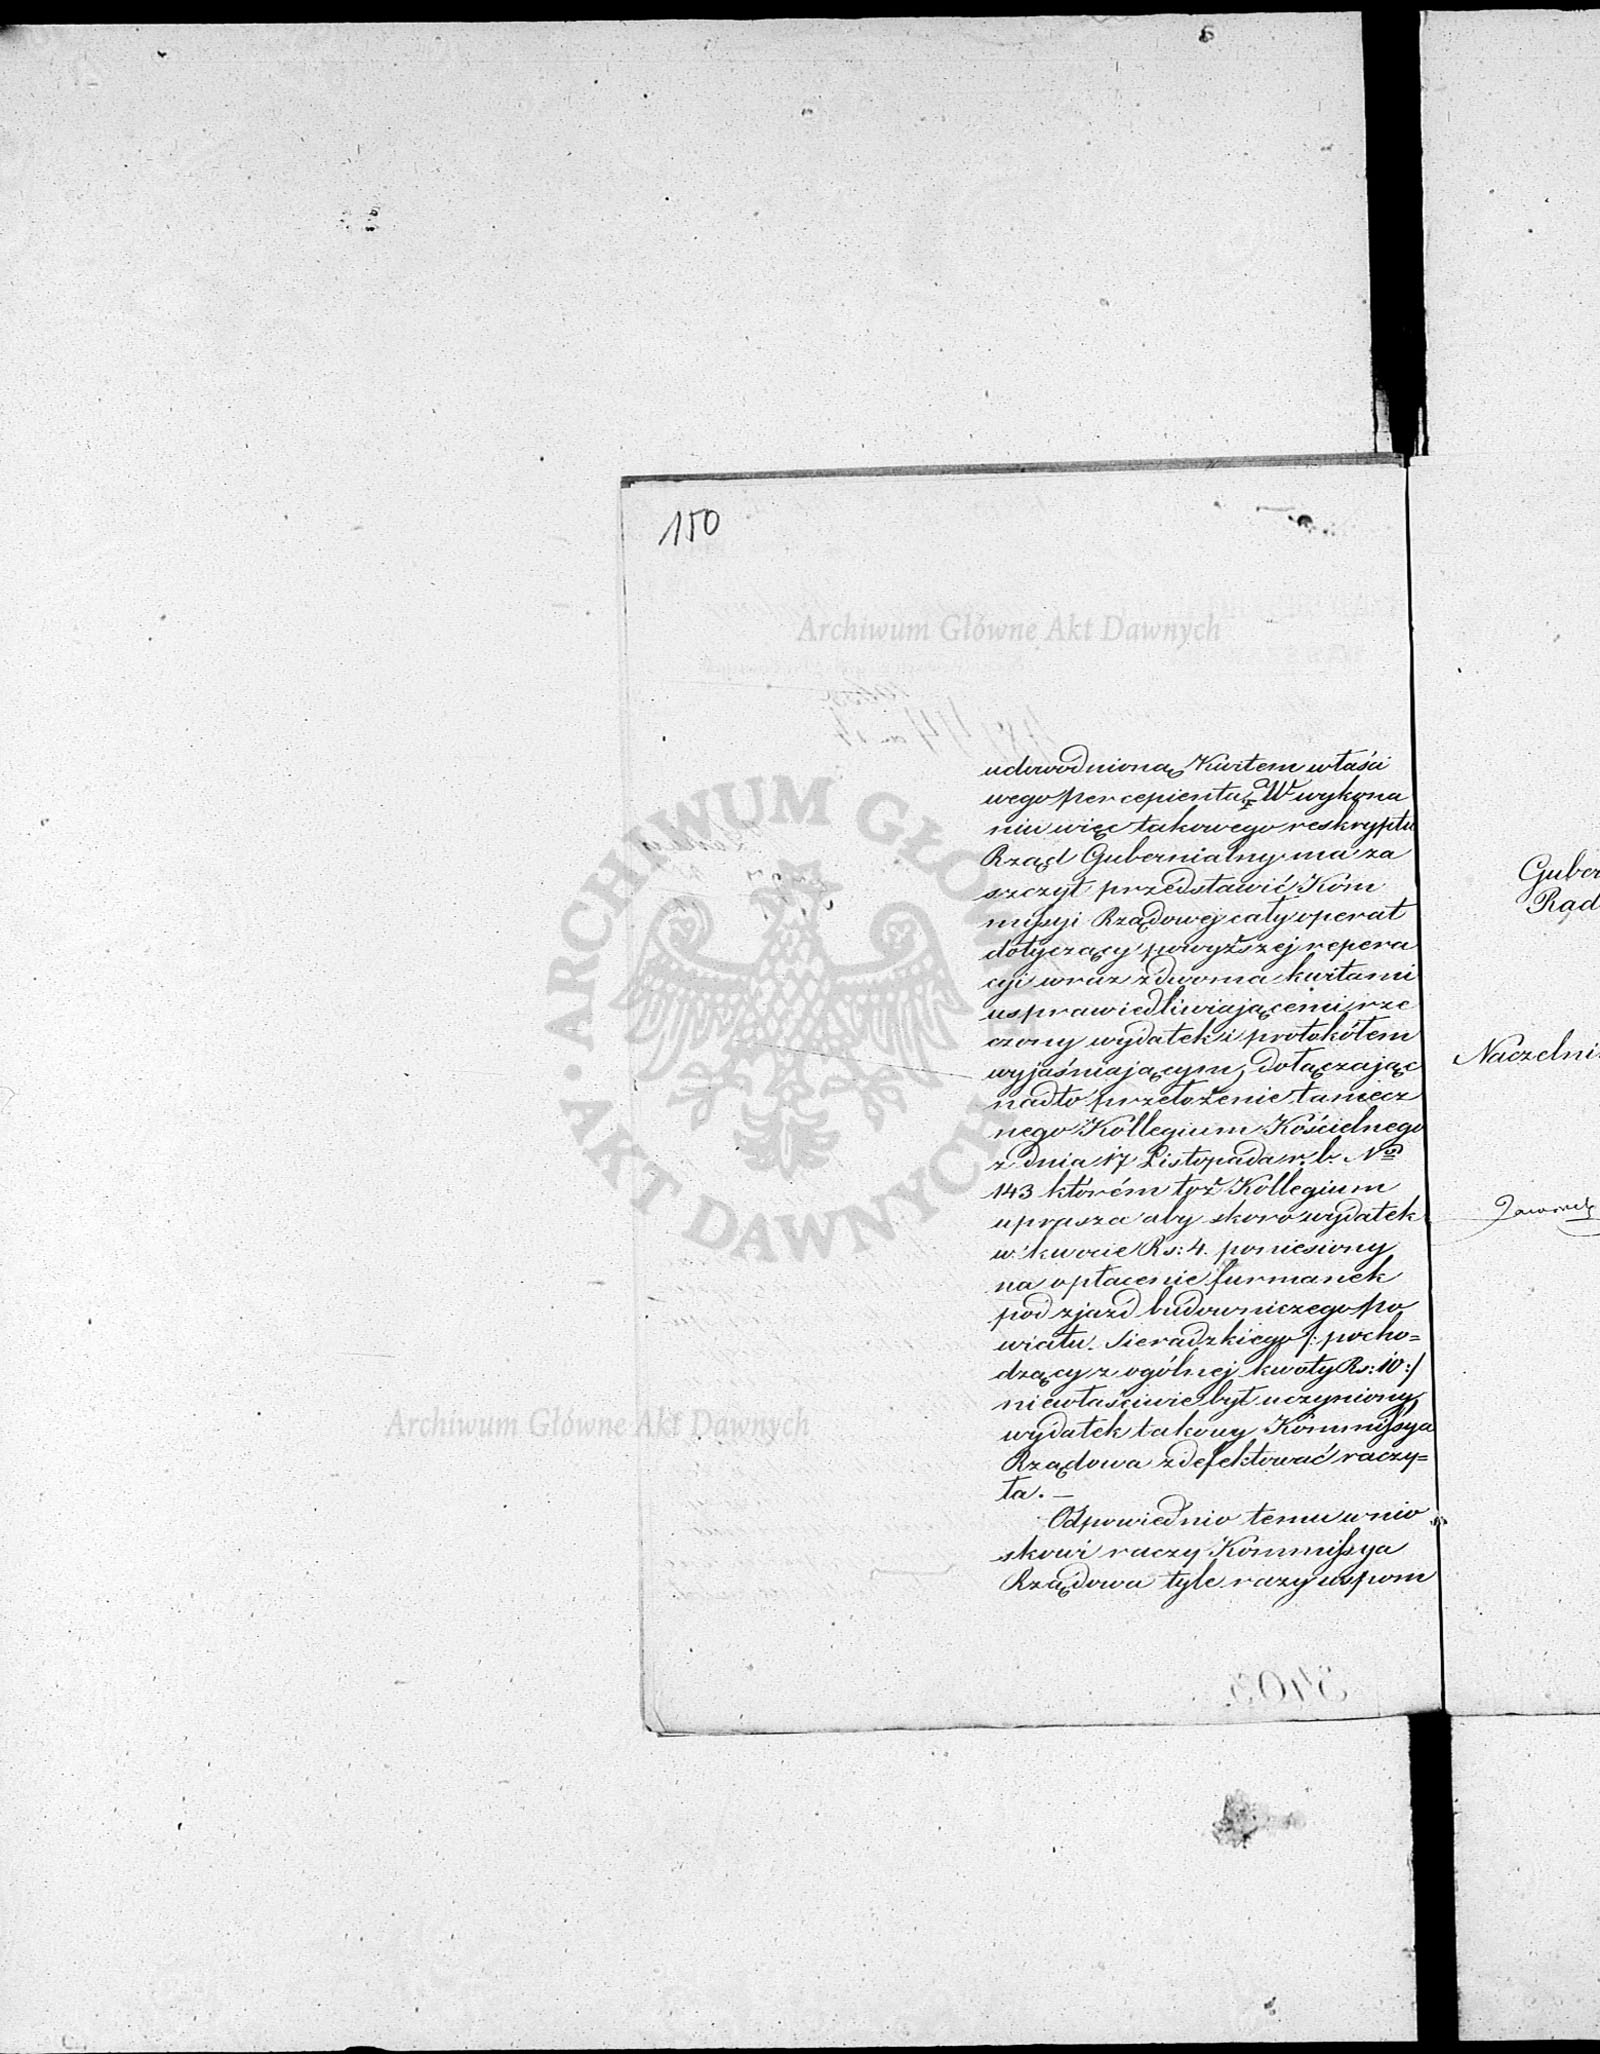 150
udowodnioną Kwitem właści
wego percepienta. W wykona
niu więc takowego reskryptu
Rząd Gubernialny ma za
szczyt przedstawić Kom
missyi Rządowej cały operat
dotyczący powyższej repera
cyi wraz z dwoma kwitami
usprawiedliwiającemi rze
czony wydatek i protokółem
wyjaśniającym, dołączając
nadto przełożenie tamecz
nego Kollegium Kościelnego
z dnia 17 Listopada r. b. No
143 którém toż Kollegium
uprasza aby skoro wydatek
w kwocie Rs: 4. poniesiony
na opłacenie furmanek
pod zjazd budowniczego po
wiatu Sieradzkiego /: pocho=
dzący z ogólnej kwoty Rs: 10 :/
niewłaściwie był uczyniony
wydatek takowy Kommissya
Rządowa zdefektować raczy=
ła. —
Odpowiednio temu wnio
skowi raczy Kommissya
Rządowa tyle razy wspom
Guber
Rad
Naczelni
Archiwum Główne Akt Dawnych
Archiwum Główne Akt Dawnych
ARCHIWUM GŁÓWNE · AKT DAWNYCH ·